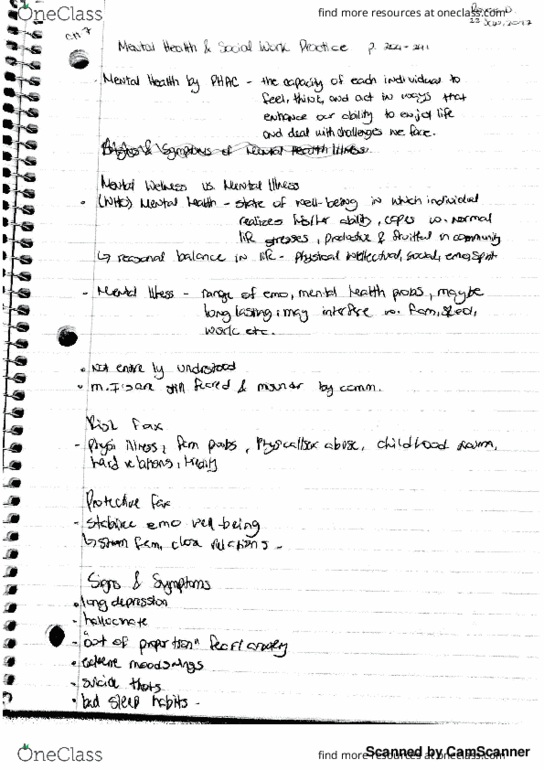 OneClass
find more resources at oneclass.com
23 Sep, 2017
Ch 7
Mental Health & Social Work Practice p. 224 - 241
- Mental Health by PHAC - the capacity of each individual to
feel, think, and act in ways that
enhance our ability to enjoy life
and deal with challenges we face.
Symptoms of Mental Health Illness
Mental Wellness vs. Mental Illness
(WHO) Mental Health - state of well-being in which individual
realizes his/her ability, copes w. normal
life stresses, productive & fruitful in community
↳ reasonal balance in life - physical intellectual, social, emo, spirit
- Mental Illness - range of emo, mental health probs, maybe
long lasting; may interfere w. fam, work etc.
• Not entirely understood
• m. I's are still feared & by comm.
Risk Fax
- physi illness, fam probs, abuse, childhood
hard relations,
Protective Fax
- stabilize emo well-being
↳ fam, close relations -
Signs & Symptoms
• long depression
- hallucinate
- "out of proportion" fear/anxiety
• extreme moodswings
- suicide thots
• bad sleep habits -
OneClass
find more resources at oneclass.com
Scanned by CamScanner